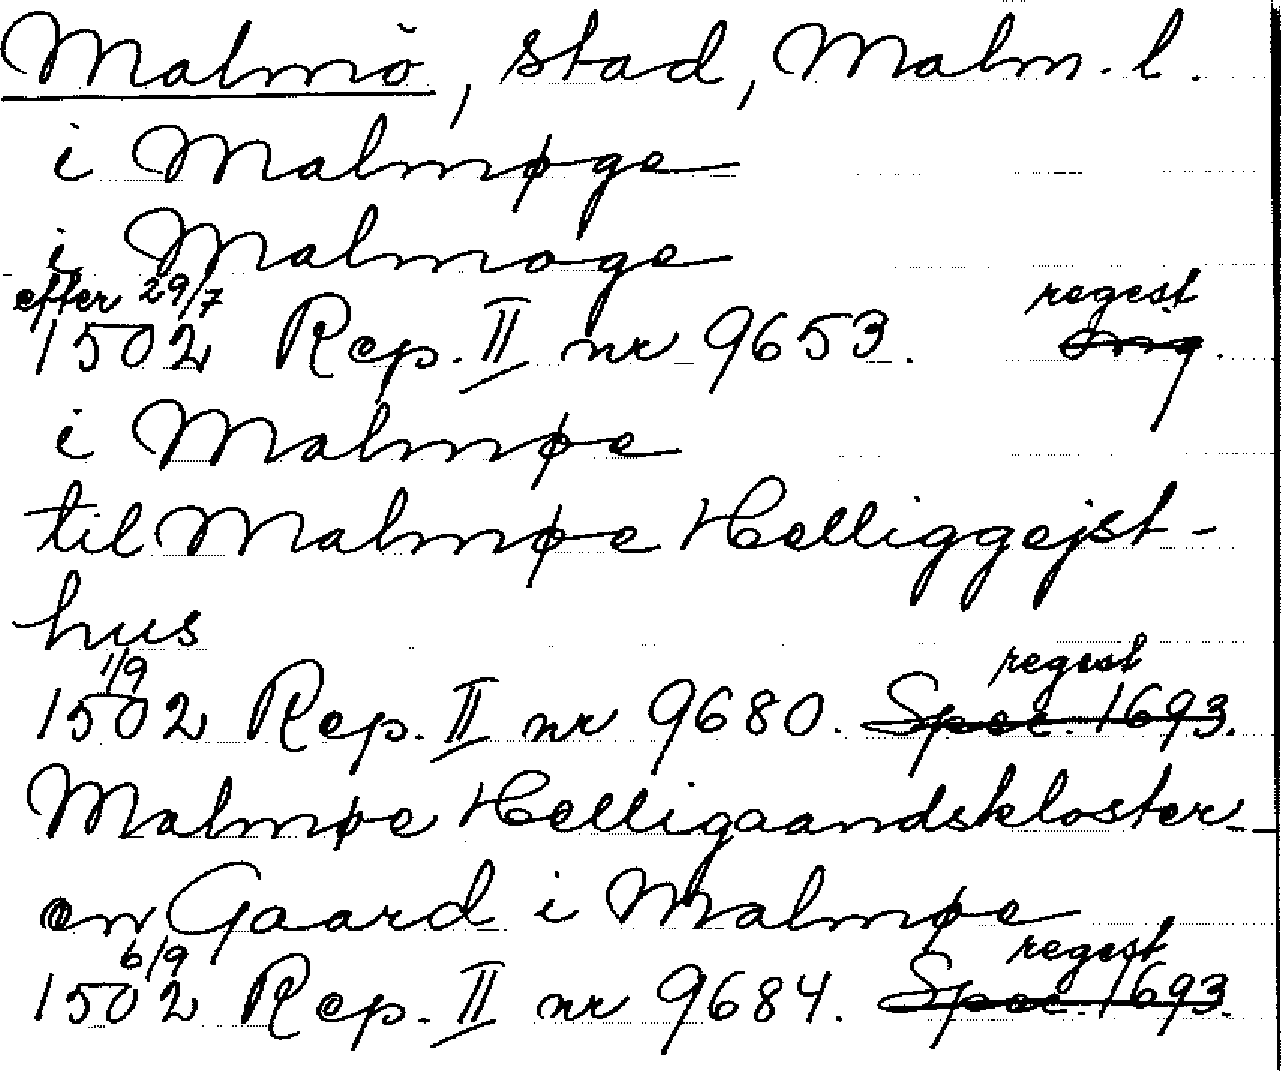 Malmö, stad, Malm. l.
i Malmøge
i Malmoge
efter 29/7 regest
1502 Rep. II nr 9653.
i Malmøe
til Malmøe Helliggejst-
hus
1/9 regest
1502 Rep. II nr 9680. Spec. 1693.
Malmøe Helligaandskloster_
en Gaard i Malmøe
6/9 regest
1502 Rep. II nr 9684. Spec. 1693.